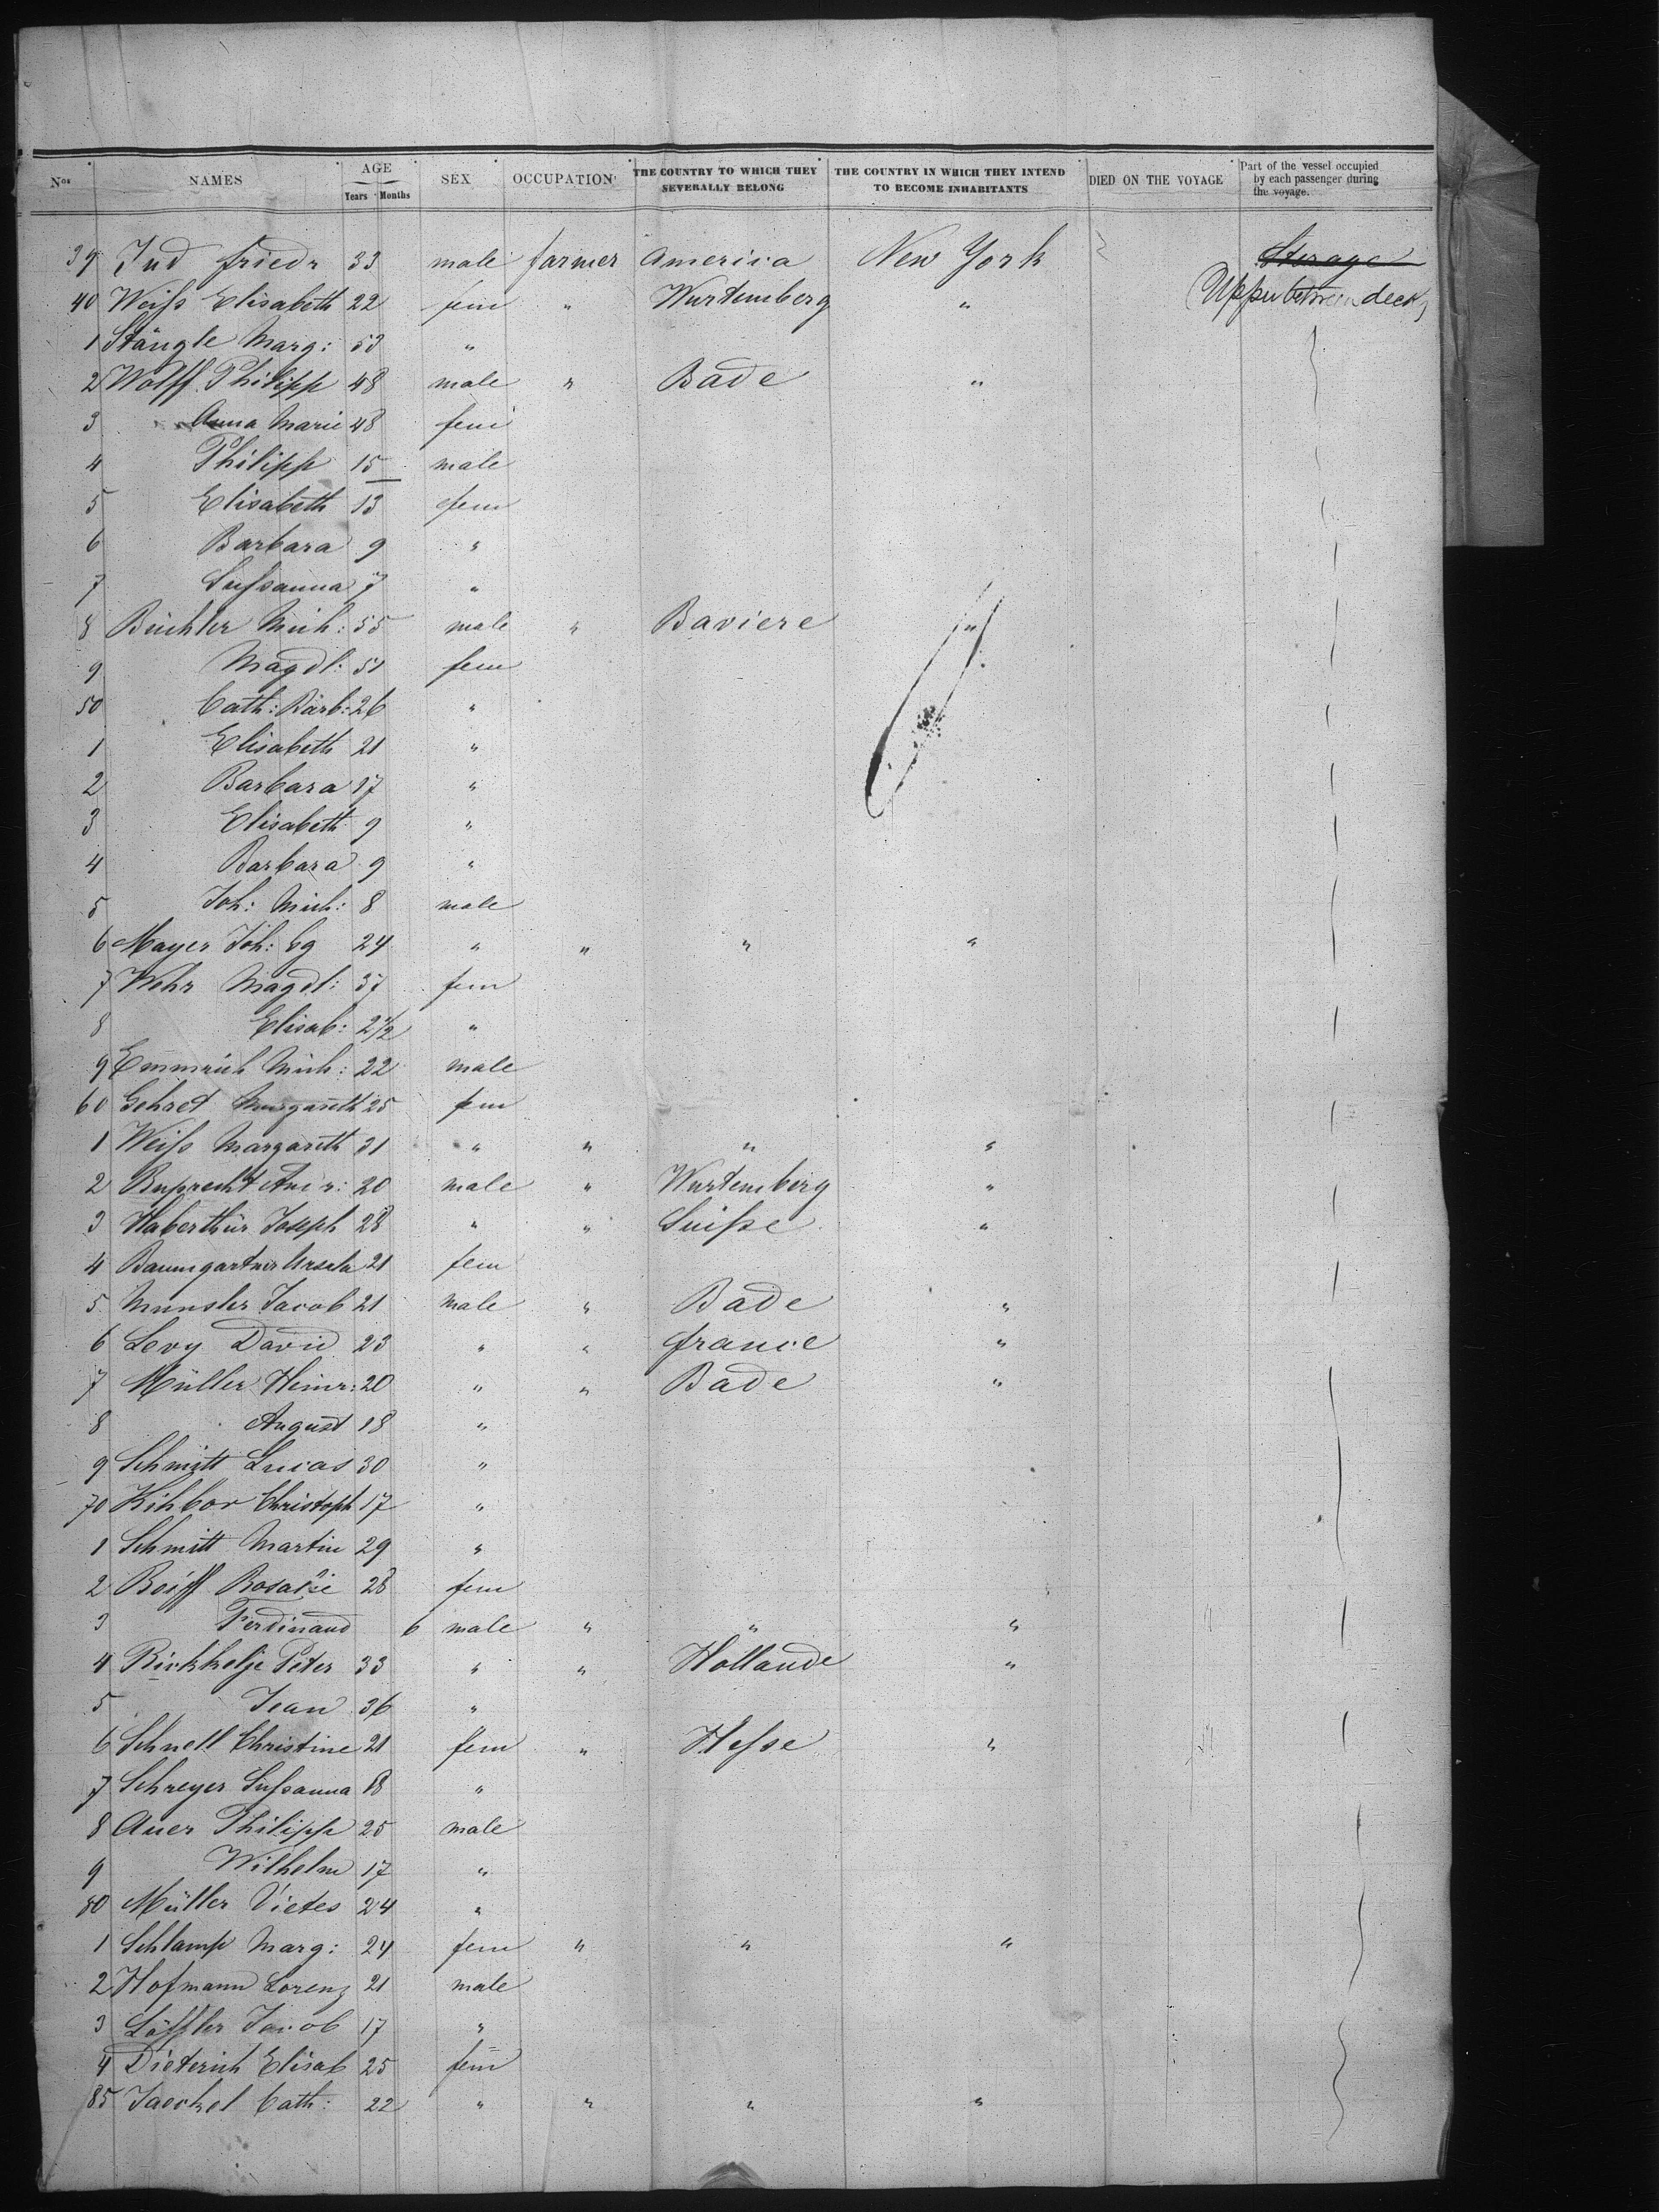 Nos NAMES AGE Years Months SEX OCCUPATION THE COUNTRY TO WHICH THEY SEVERALLY BELONG THE COUNTRY IN WHICH THEY INTEND TO BECOME INHABITANTS DIED ON THE VOYAGE Part of the vessel occupied by each passenger during the voyage.
39 Jud friedr 33 male farmer America New York Sterage
40 Weiss Elisabeth 22 fem " Wurtemberg " Upper between deck
1 Stängle Marg: 53 "
2 Wolff Philipp 48 male " Bade "
3 Anna Marie 48 fem
4 Philipp 15 male
5 Elisabeth 13 fem
6 Barbara 9 "
7 Sussanna 7 "
8 Büchler Mich: 55 male " Baviere "
9 Magdl: 51 fem
50 Cath: Barb: 26 "
1 Elisabeth 21 "
2 Barbara 17 "
3 Elisabeth 9 "
4 Barbara 9 "
5 Joh: Mich: 8 male
6 Mayer Joh: Cg 24 " " " "
7 Wehr Magdl: 37 fem
8 Elisab: 2 1/2 "
9 Emmrich Mich: 22 male
60 Gehret Margareth 25 fem
1 Weiss Margareth 31 " " " "
2 Ruprecht 20 male " Wurtemberg "
3 Haberthür Joseph 28 " " Suisse "
4 Baumgartner Ursula 21 fem
5 Munsler Jacob 21 male " Bade "
6 Levy David 23 " " france "
7 Müller Heinr: 20 " " Bade "
8 August 18 "
9 Schmitt Lucas 30 "
70 Christoph 17 "
1 Schmitt Martin 29 "
2 Boiff Rosalie 28 fem
3 Ferdinand 6 male " " "
4 Peter 33 " " Hollande "
5 Jean 36 "
6 Schnell Christine 21 fem " Hesse "
7 Schreyer Sussanna 18 "
8 Auer Philipp 25 male
9 Wilhelm 17 "
80 Müller 24 "
1 Schlamp Marg: 24 fem " " "
2 Hofmann Lorenz 21 male
3 Löffler Jacob 17 "
4 Dieterich Elisab 25 fem
85 Jaeckel Cath: 22 " " " "